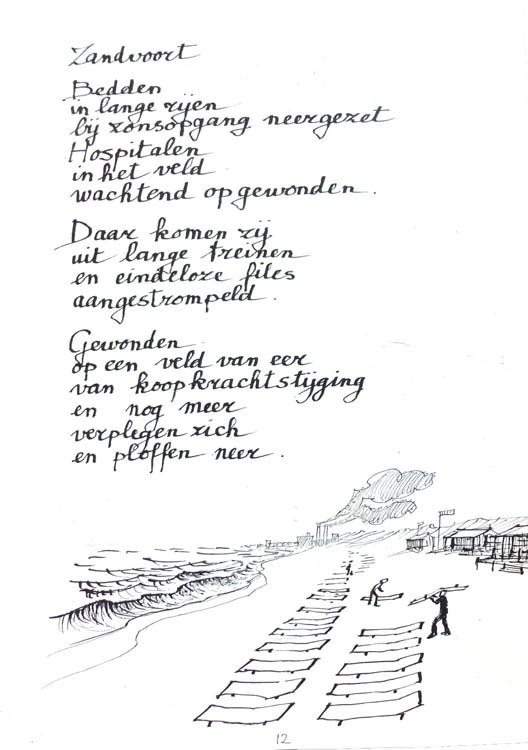 Zandvoort
Bedden
in lange rijen
bij zonsopgang neergezet
Hospitalen
in het veld
wachtend op gewonden.
Daar komen zij
uit lange treinen
en eindeloze files
aangestrompeld.
Gewonden
op een veld van eer
van koopkrachtstijging
en nog meer
verplegen zich
en ploffen neer.
12